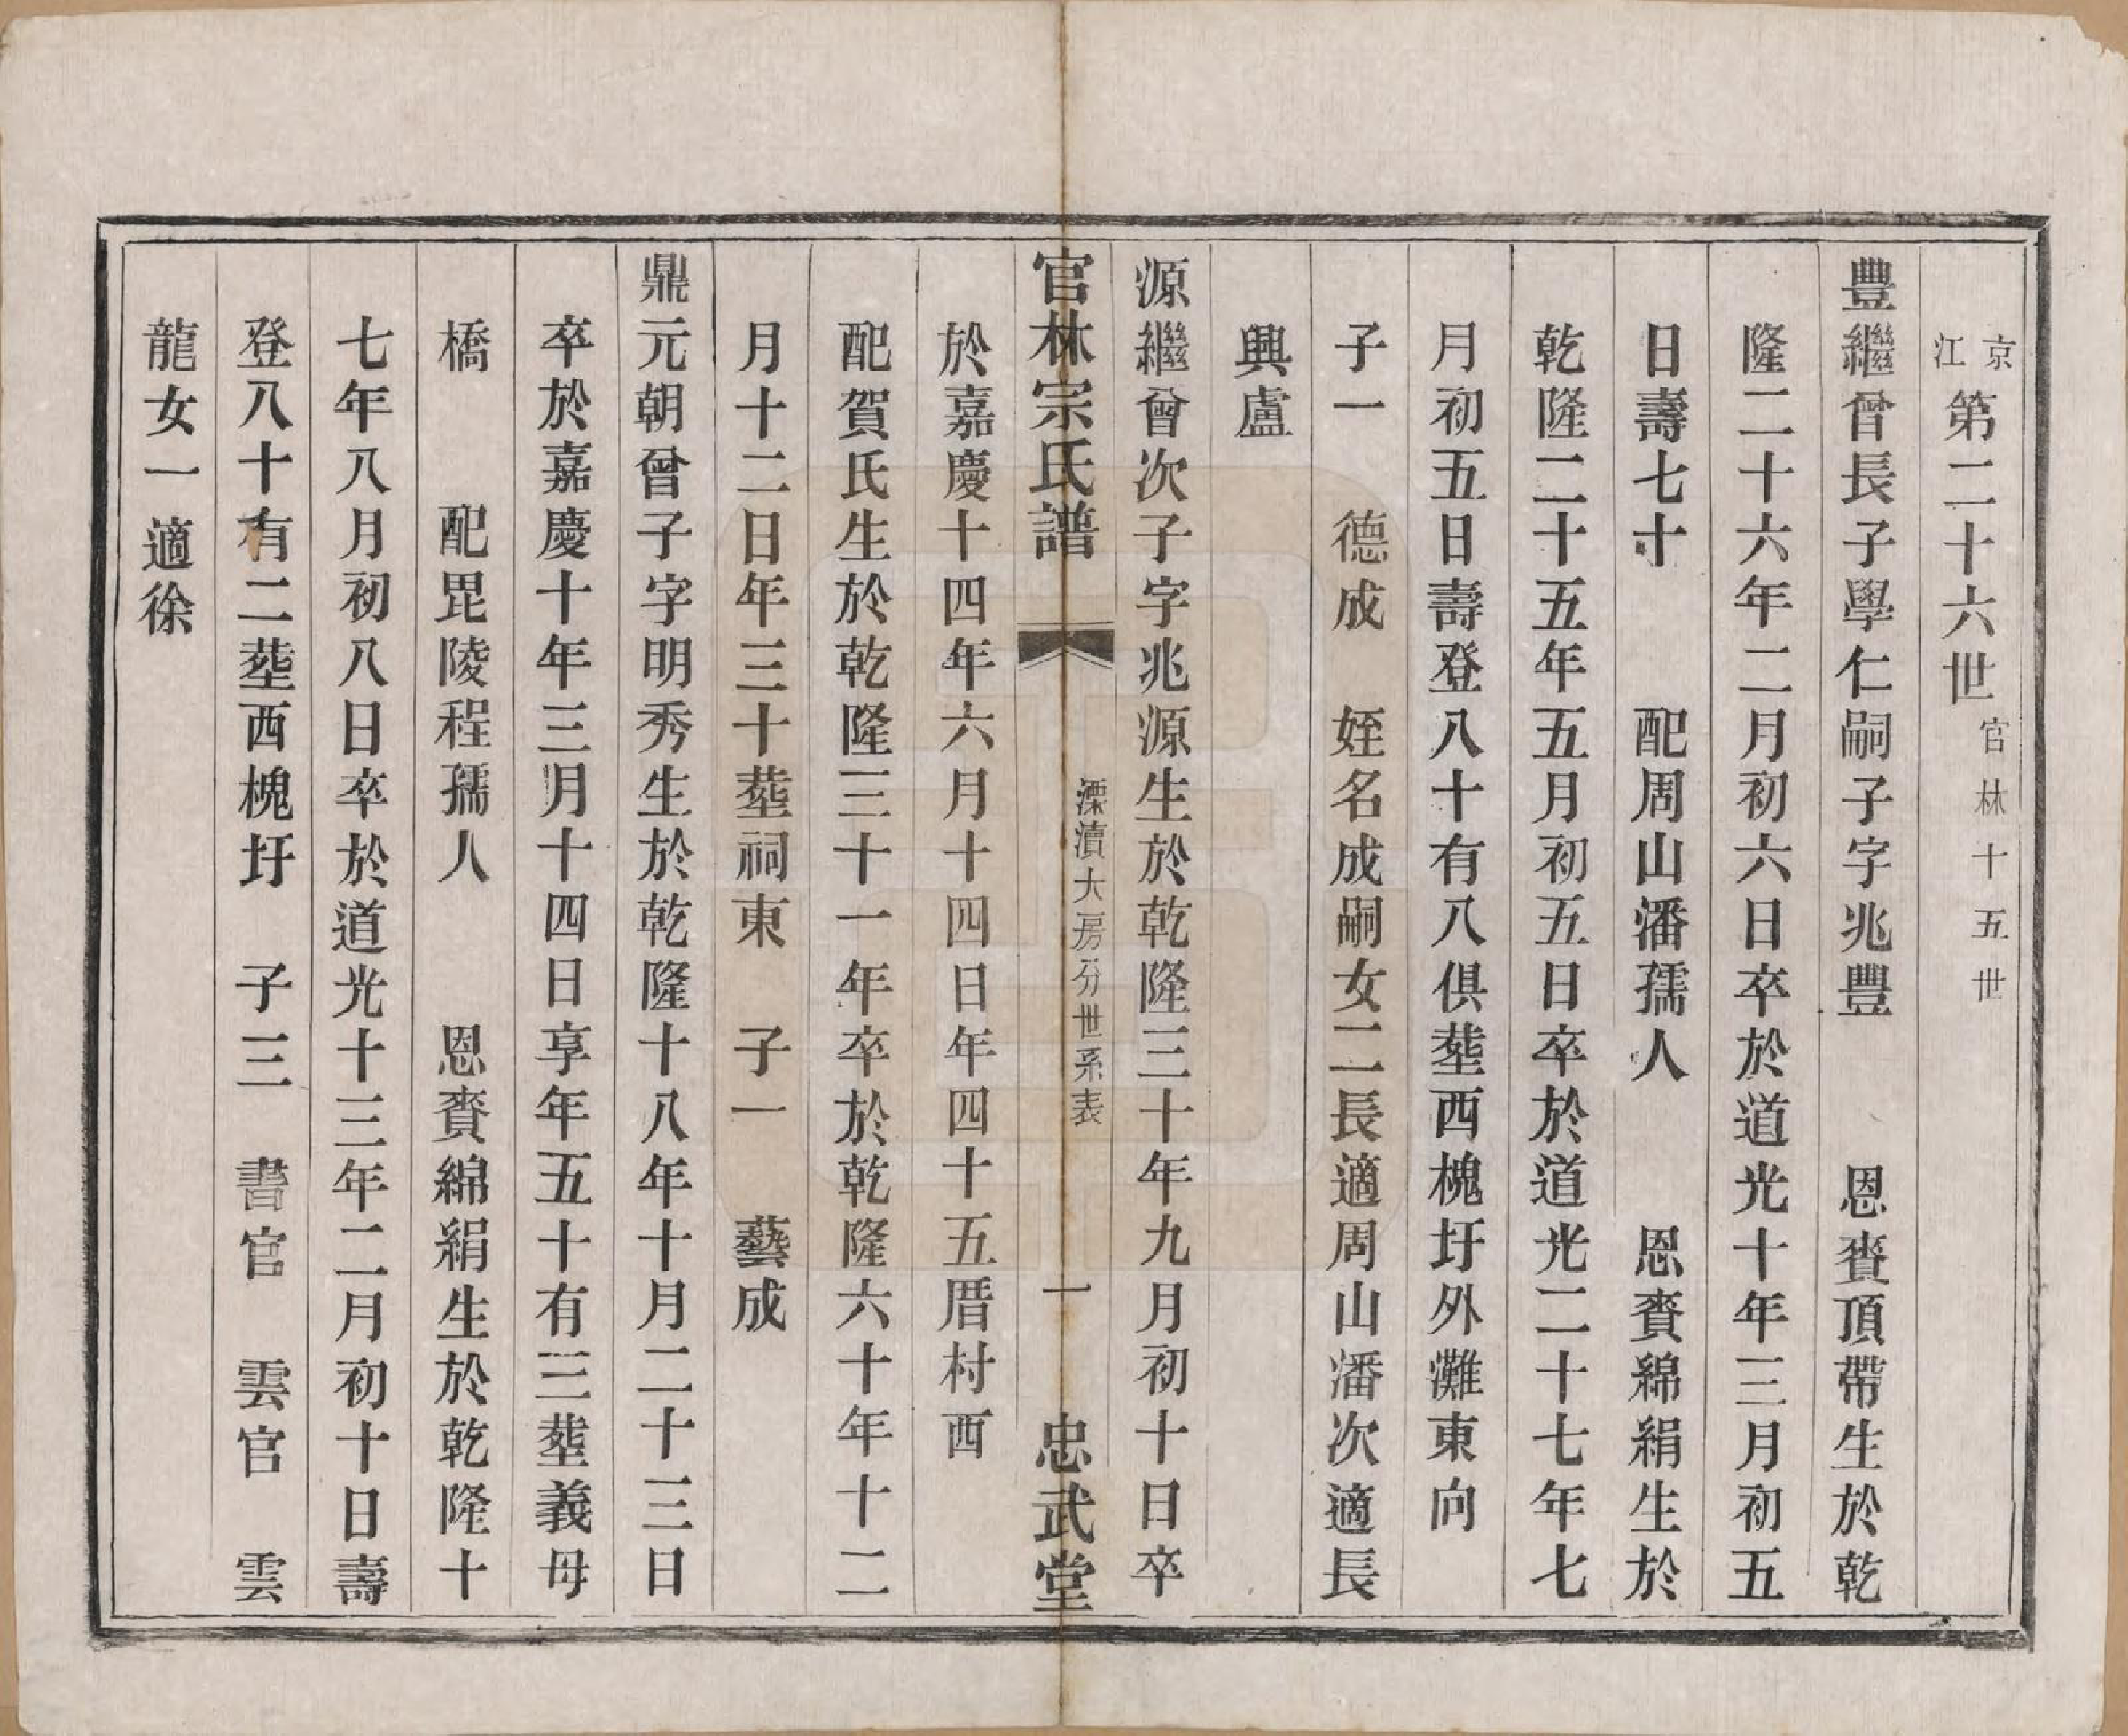 京江第二十六世官林十五世
豐繼曾長子學仁嗣子字兆豐 恩賚頂帶生於乾
隆二十六年二月初六日卒於道光十年三月初五
日壽七十 配周山潘孺人 恩賚綿絹生於
乾隆二十五年五月初五日卒於道光二十七年七
月初五日壽登八十有八俱塟西槐圩外灘東向
子一 德成 姪名成嗣女二長適周山潘次適長
興盧
源繼曾次子字兆源生於乾隆三十年九月初十日卒
官林宗氏譜 溧瀆大房分世系表 一 忠武堂
於嘉慶十四年六月十四日年四十五厝村西
配賀氏生於乾隆三十一年卒於乾隆六十年十二
月十二日年三十塟祠東 子一 藝成
鼎元朝曾子字明秀生於乾隆十八年十月二十三日
卒於嘉慶十年三月十四日享年五十有三塟義母
橋 配毘陵程孺人 恩賚綿絹生於乾隆十
七年八月初八日卒於道光十三年二月初十日壽
登八十有二塟西槐圩 子三 書官 雲官 雲
龍女一適徐